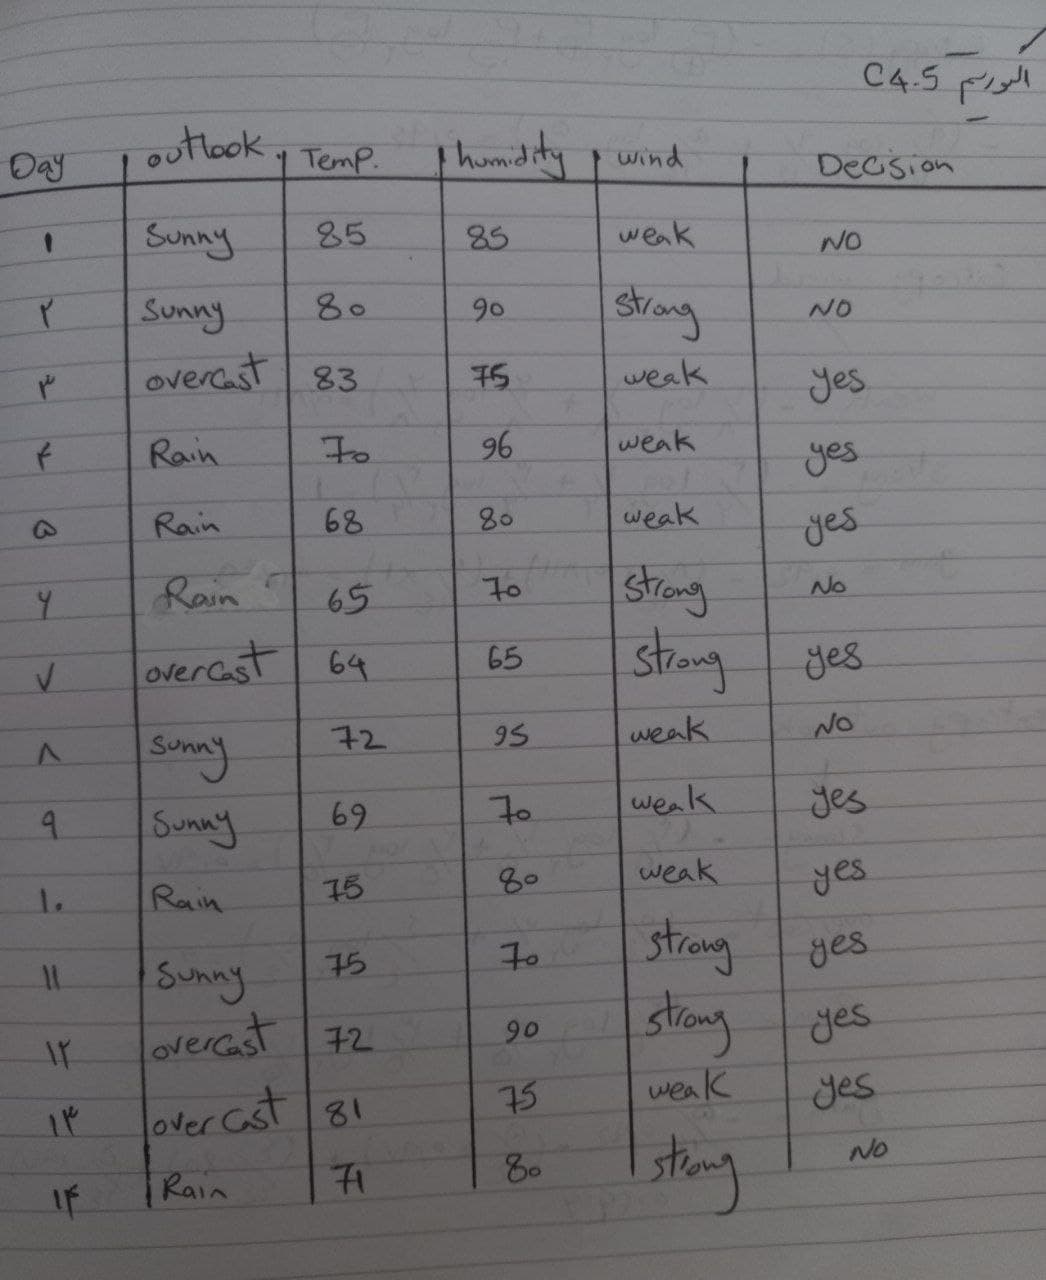 الگوریتم C4.5
Day outlook Temp. humidity wind Decision
۱ Sunny 85 85 weak NO
۲ Sunny 80 90 strong NO
۳ overcast 83 75 weak yes
۴ Rain 70 96 weak yes
۵ Rain 68 80 weak yes
۶ Rain 65 70 strong No
۷ overcast 64 65 strong yes
۸ Sunny 72 95 weak NO
۹ Sunny 69 70 weak yes
۱۰ Rain 75 80 weak yes
۱۱ Sunny 75 70 strong yes
۱۲ overcast 72 90 strong yes
۱۳ overcast 81 75 weak yes
۱۴ Rain 71 80 strong No